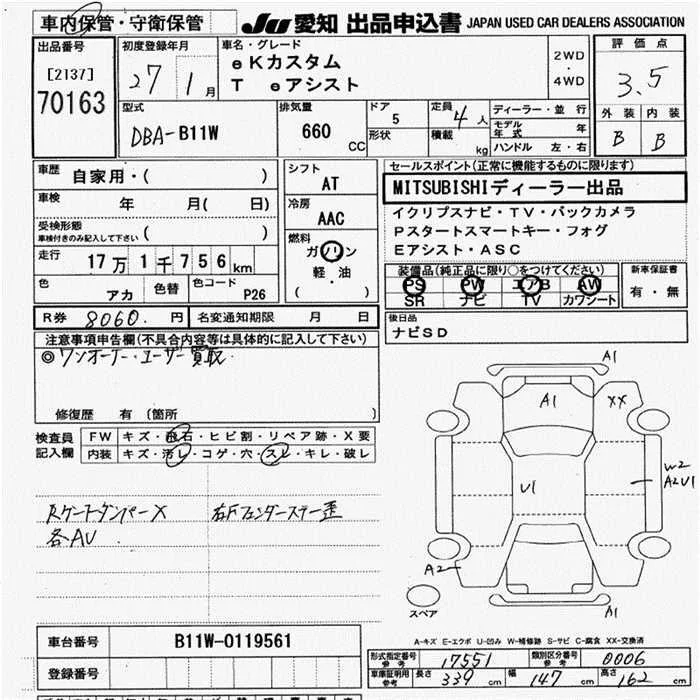 車内保管・守衛保管
JU 愛知 出品申込書 JAPAN USED CAR DEALERS ASSOCIATION
出品番号
[2137]
70163
初度登録年月
27 1月
車名・グレード
eKカスタム
T eアシスト
2WD
・
4WD
評価点
3.5
外装 内装
B B
型式
DBA-B11W
排気量
660
CC
ドア
5
形状
定員
4人
積載
kg
ディーラー・並行
モデル年式 年
ハンドル 左・右
車歴
自家用・( )
車検
年 月( 日)
受検形態
車検付きのみ記入して下さい ( )
走行
17万1千756km
色
アカ
色替
色コード
P26
シフト
AT
冷房
AAC
燃料
ガソリン
・
軽・油
( )
セールスポイント(正常に機能するものに限ります)
MITSUBISHIディーラー出品
イクリプスナビ・TV・バックカメラ
Pスタートスマートキー・フォグ
Eアシスト・ASC
装備品(純正品に限り○をつけてください)
PS PW エアB AW
SR ナビ TV カワシート
新車保証書
有・無
R券 8060.円
名変通知期限 月 日
後日品
ナビSD
注意事項申告欄(不具合内容等は具体的に記入して下さい)
◎ワンオーナー・ユーザー買取
修復歴 有 〔箇所 〕
検査員
記入欄
FW キズ・飛石・ヒビ割・リペア跡・X要
内装 キズ・汚レ・コゲ・穴・スレ・キレ・破レ
RゲートダンパーX
右Fフェンダーステー歪
各AU
A1
A1
XX
U1
W2
A2U1
A2
A1
スペア
A-キズ E-エクボ U-凹み W-補修跡 S-サビ C-腐食 XX-交換済
車台番号 B11W-0119561
登録番号
形式指定番号
参考
17551
類別区分番号
参考
0006
車庫証明用
参考
長さ 339cm
幅 147cm
高さ 162cm